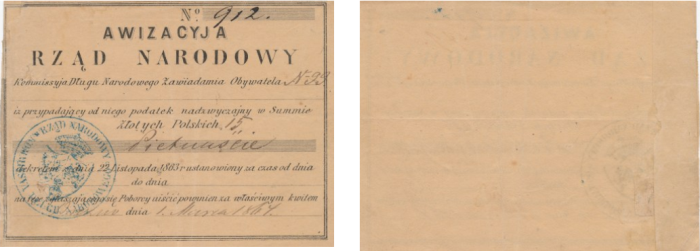 No. 912.
AWIZACYJA
RZĄD NARODOWY
Kommissyja Długu Narodowego Zawiadamia Obywatela N. 93
iż przypadający od niego podatek nadzwyczajny w Summie
Złotych Polskich 15
Pietnaście
dekretem z dnia 22 Listopada 1863 r ustanowiony za czas od dnia
do dnia
na ręce się Poborcy uiścić powinien za właściwym kwitem
dnia 1. Marca 1864.
RZĄD NARODOWY